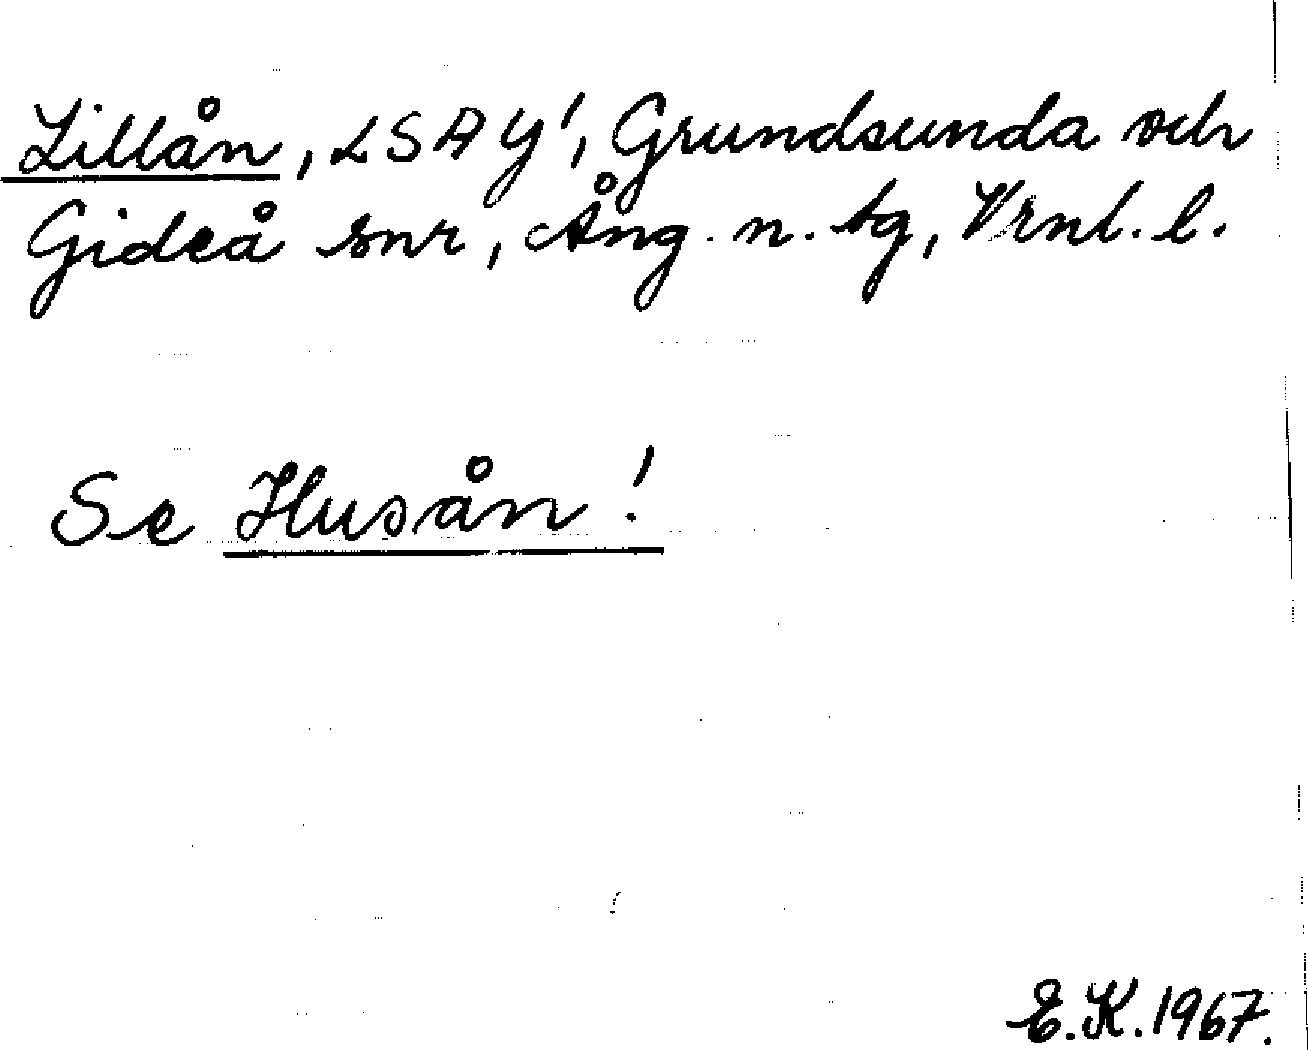 Lillån, LSAY', Grundsunda och
Gideå snr, Ång. n. tg, Vrnl. l.
Se Husån!
E.K. 1967.